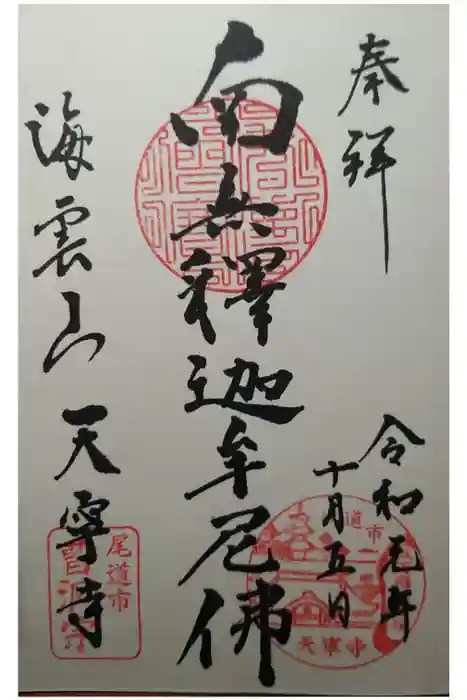 奉拝
令和元年
十月五日
南無釋迦牟尼佛
海雲山
天寧寺
尾道市
道市
天寧寺